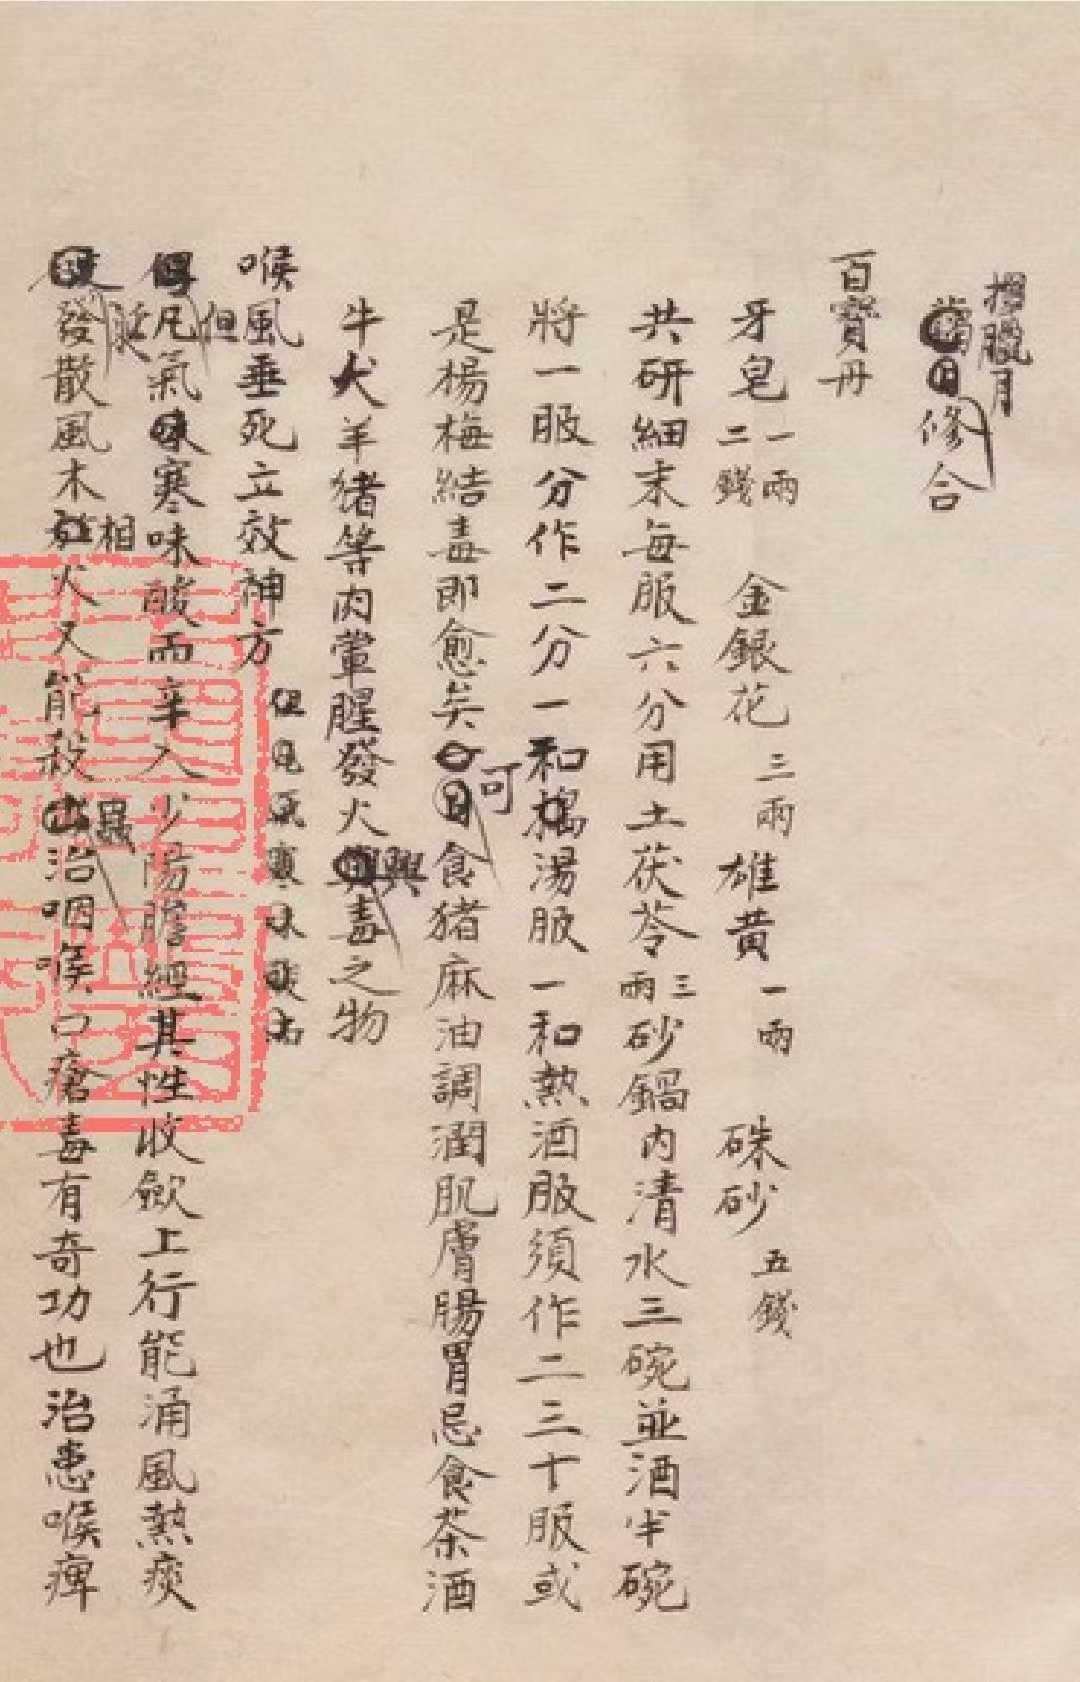 擇臘月
修合
百寶丹
牙皂一兩二錢 金銀花三兩 雄黄一兩 硃砂五錢
共研細末每服六分用土茯苓三兩砂鍋内清水三碗並酒半碗
將一服分作二分一和湯服一和熱酒服須作二三十服或
是楊梅結毒即愈矣可食猪麻油調潤肌膚腸胃忌食茶酒
牛犬羊猪等肉葷腥發火興毒之物
喉風垂死立效神方
但凡氣寒味酸而辛入少陽膽經其性收歛上行能涌風熱痰
涎發散風木相火又能殺蟲治咽喉口瘡毒有奇功也治患喉痺